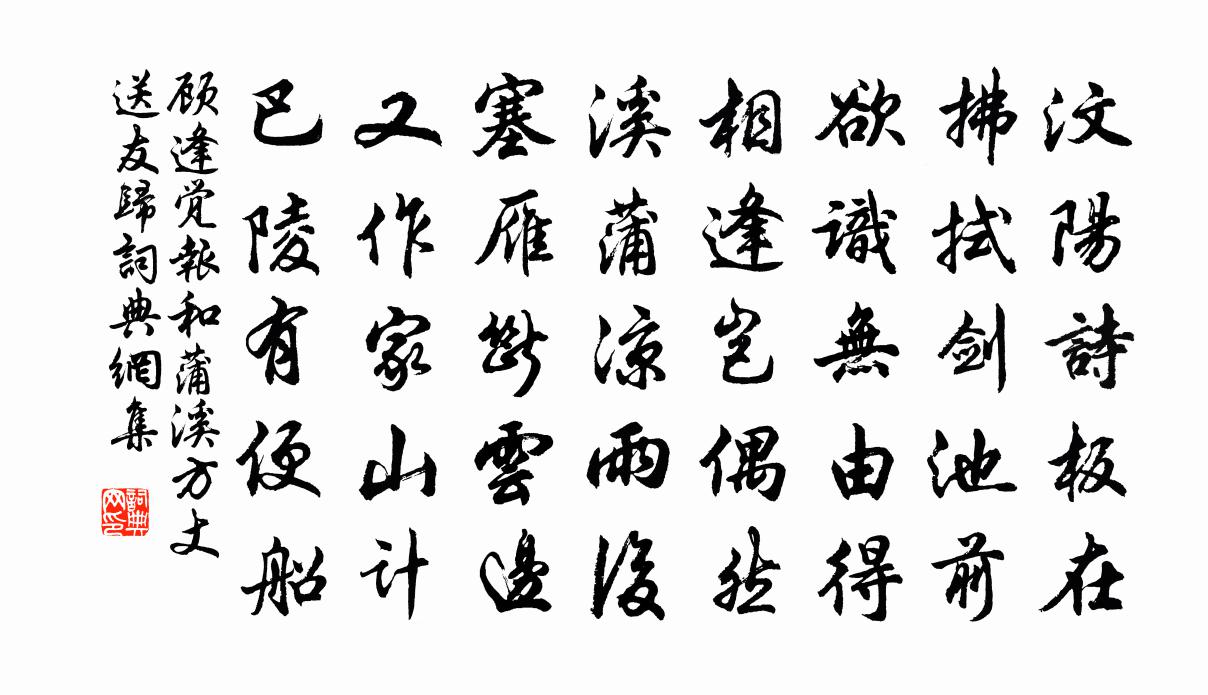 汶陽詩板在
拂拭剑池前
欲識無由得
相逢岂偶然
溪蒲凉雨後
塞雁斷雲邊
又作家山计
巴陵有便船
顾逢觉報和蒲溪方丈
送友歸詞典網集
詞典
网印